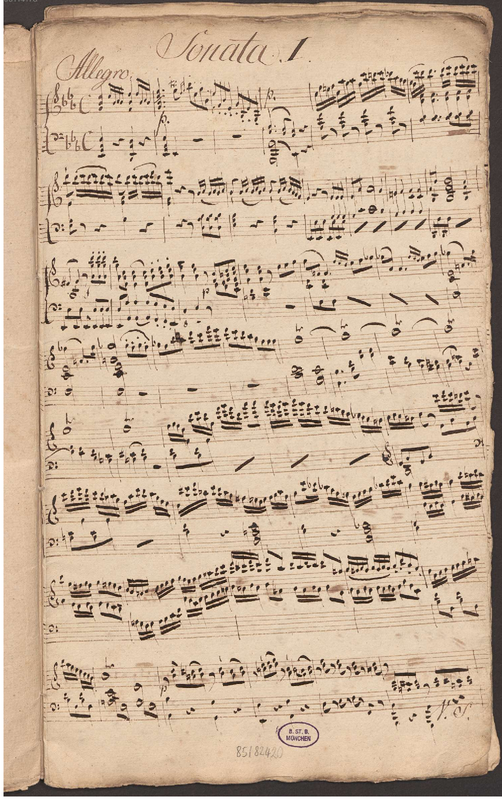 Sonata 1.
Allegro
p.
p.
p
p
V. S.
B. ST. B.
MÜNCHEN